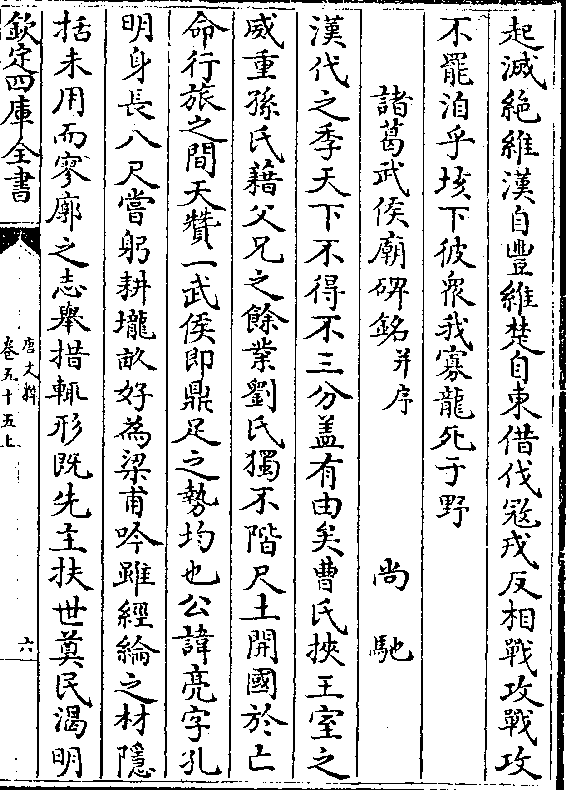 起滅絶維漢自豐維楚自東借伐寇戎反相戰攻戰攻
不罷洎乎垓下彼衆我寡龍死于野
諸葛武侯廟碑銘并序 尚馳
漢代之季天下不得不三分盖有由矣曹氏挾王室之
威重孫氏藉父兄之餘業劉氏獨不階尺土開國於亡
命行旅之間天贊一武侯即鼎足之勢均也公諱亮字孔
明身長八尺嘗躬耕壠畝好為梁甫吟雖經綸之材隱
括未用而寥廓之志舉措輒形既先主扶世奠民渴明
欽定四庫全書
唐文粹
卷五十五上
六